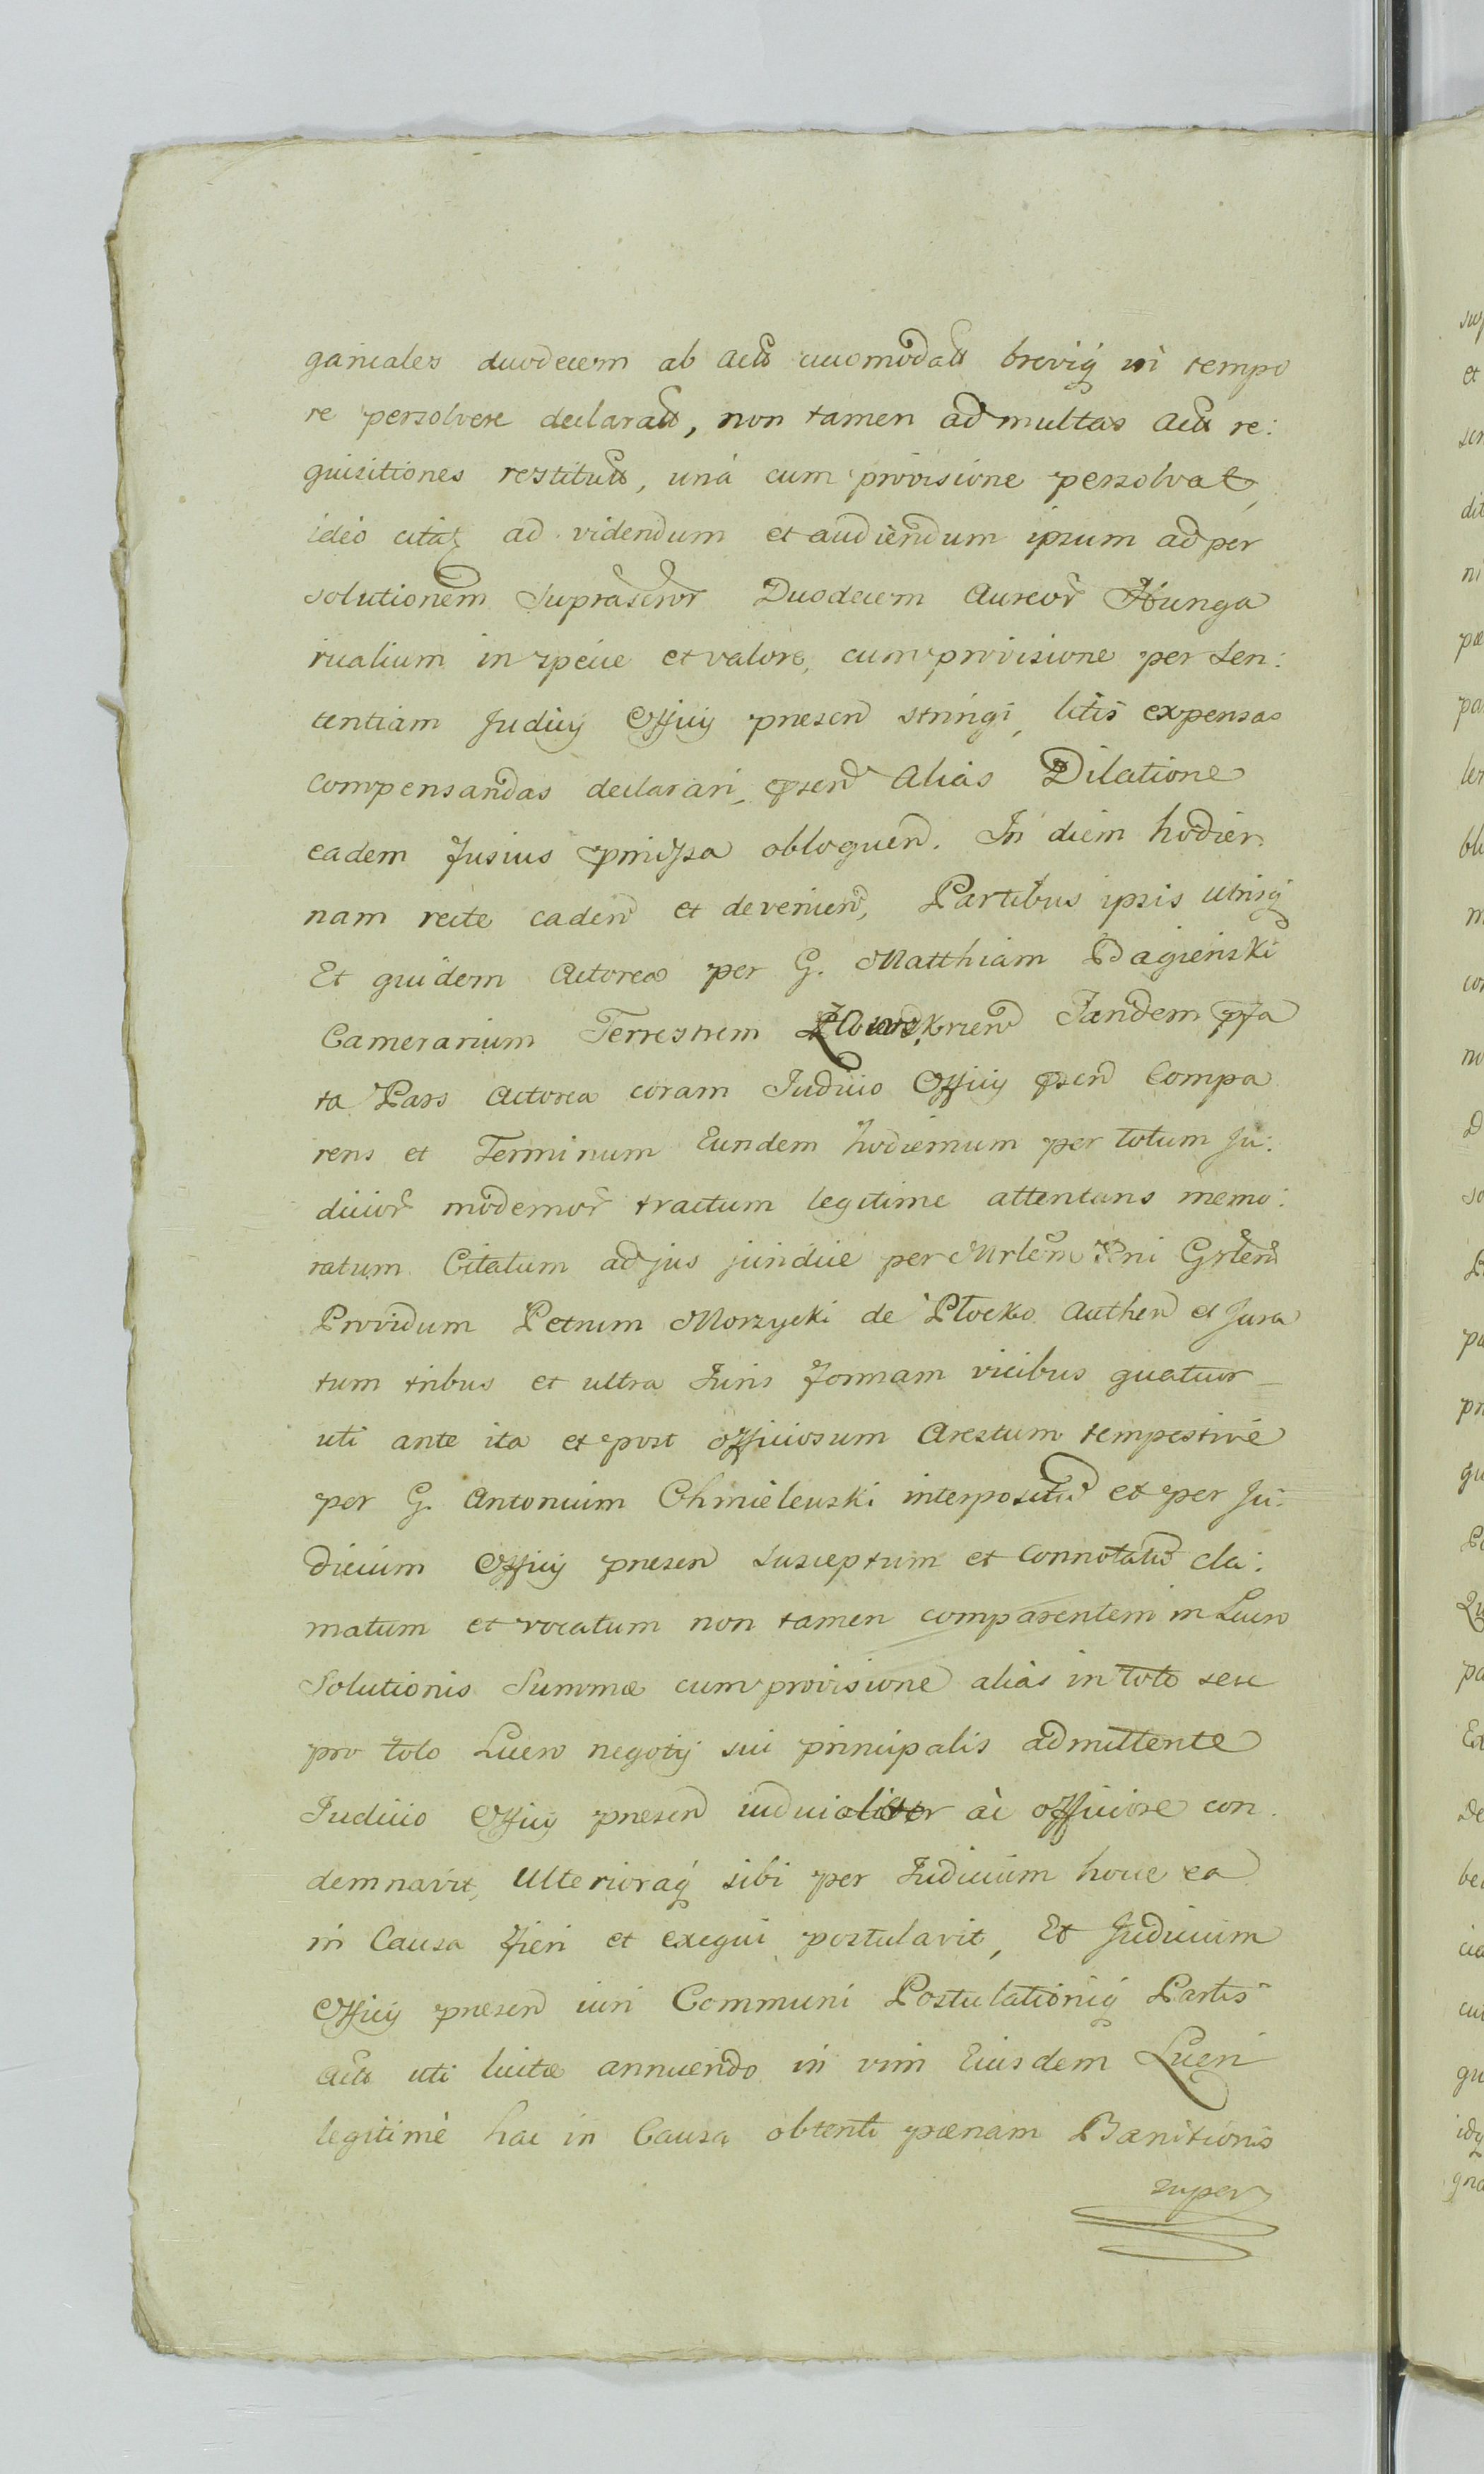 garicales duodecem ab actt accomodatt breviq in tempo
re persolvere declaratt, non tamen ad multas actt re:
quisitiones restitutt, unà cum provisione persolvat,
ideo citatq ad videndum et audiendum ipsum ad per
solutionem Suprascror Duodecem Aureor Hunga
ricalium in specie et valore, cum provisione per Sen:
tentiam Judicij Officij præsen stringi, litis expensas
compensandas declarari, præsen alias Dilatione
eadem fusius præmissa obloquen. In diem hodier
nam recte caden et devenien, Partibus ipsis utrisq
Et quidem Actorea per G. Matthiam Bagieński
Camerarium Terrestrem Zawskrien Tandem præfa
ta Pars Actorea coram Judicio Officij præsen Compa
rens et Terminum Eundem hodiernum per totum Ju:
dicior modernor tractum legitime attentans memo:
ratum Citatum ad jus juridice per Mrlem Rni Gnlem
Providum Petrum Morzycki de Płocko Authen et Jura
tum tribus et ultra Juris formam vicibus quatuor
uti ante ita et post officiosum Arestum tempestivè
per G. Antonium Chmielewski interpositu et per Ju:
dicium Officij præsen susceptum et connotatu cla:
matum et vocatum non tamen comparentem in Lucro
Solutionis Summæ cum provisione alias in toto seu
pro toto Lucro negotij sui principalis admittente
Judicio Officij præsen iudicialiter ac officiose con
demnavit, Ulterioraq sibi per Judicium hocce ea
in Causa fieri et exequi postulavit, Et Judicium
Officij præsen iuri Communi Postulationiq Partis
actt uti licitæ annuendo in vim Eiusdem Lucri
legitimè hac in Causa obtenti pænam Banitionis
super